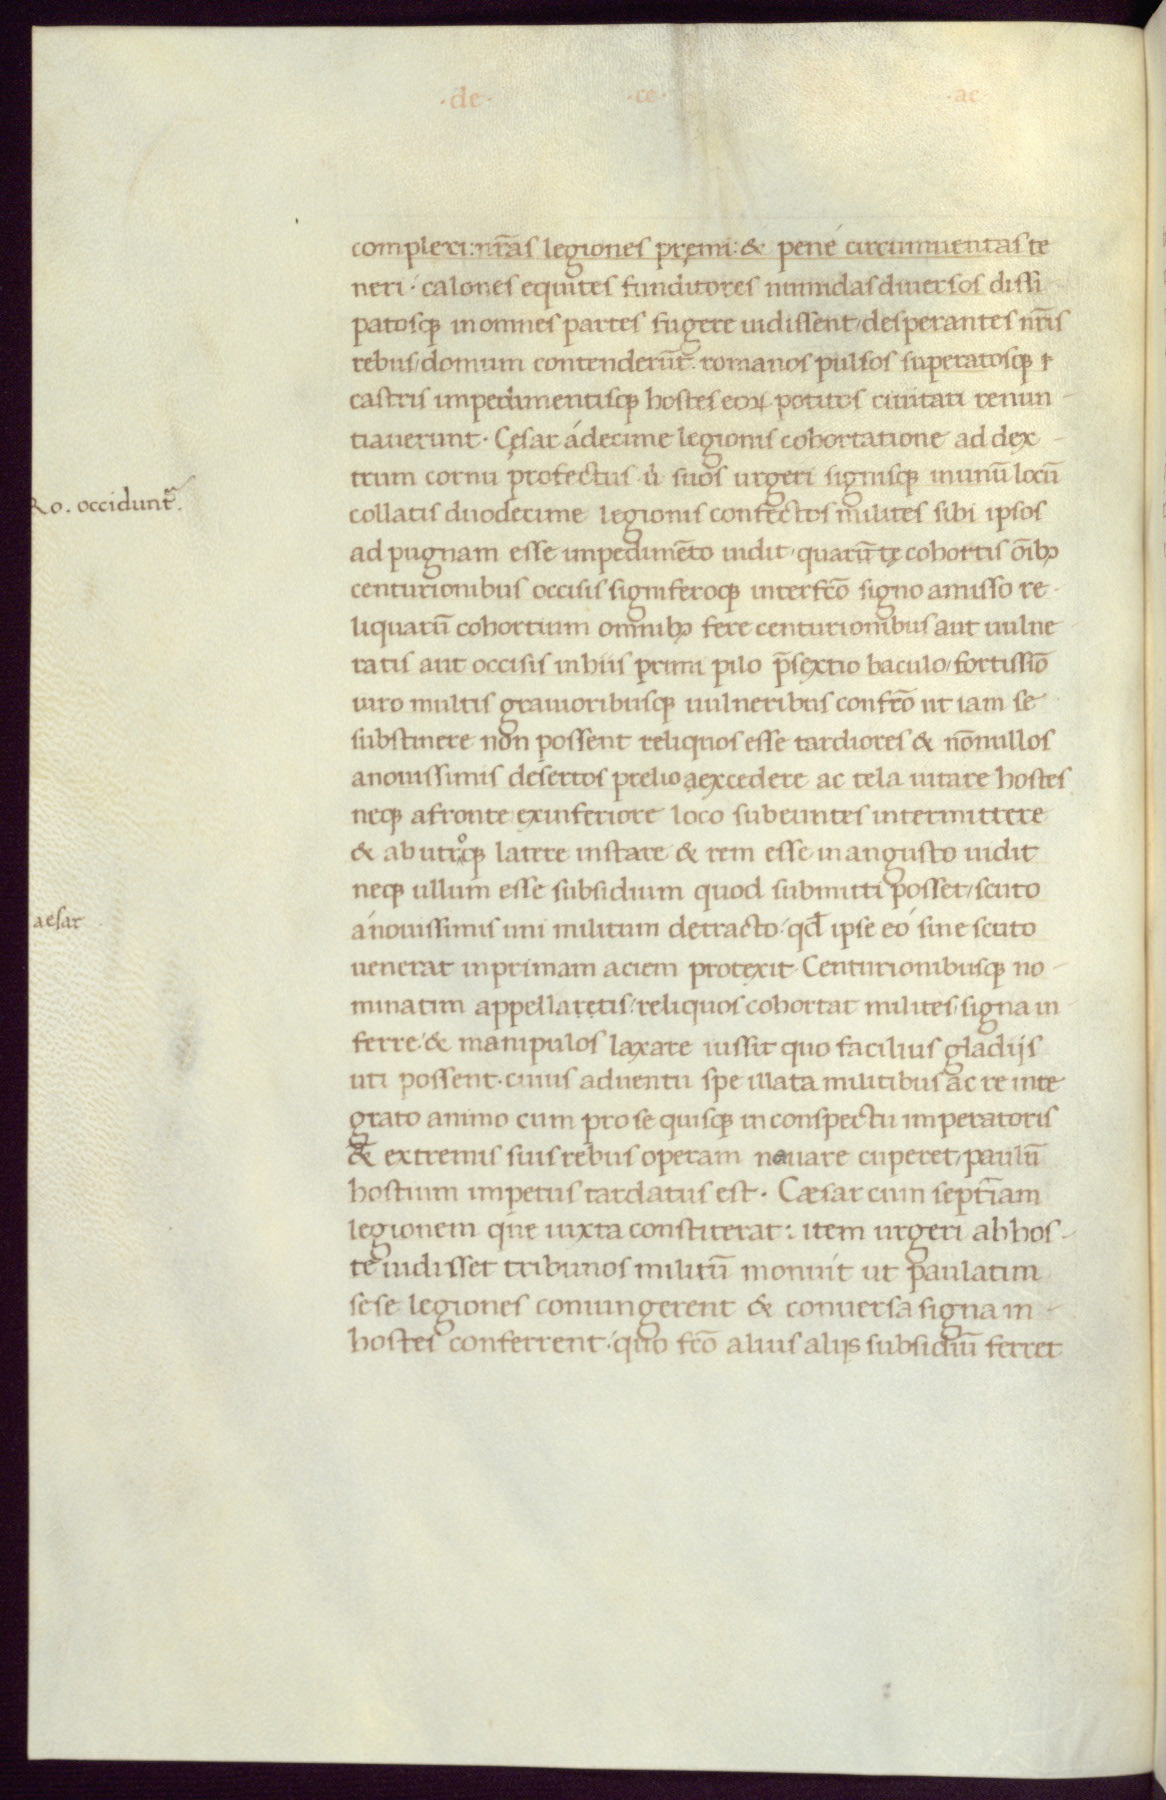 ·de· ·ce· ·ac·
complexi: nr̄as legiones pręmi: & pene circumuentas te
neri · calones equites funditores numidas diuersos dissi
patosq; in omnes partes fugere uidissent, desperantes nr̄is
rebus, domum contenderūt. romanos pulsos superatosq;
castris impedimentisq; hostes eoꝝ potitos ciuitati renun-
tiauerunt. Cęsar a decime legionis cohortatione ad dex-
trum cornu profectus ů suos urgeri signisq; in unū locū
collatis duodecime legionis confectos milites sibi ipsos
ad pugnam esse impedimēto uidit, quarūtę cohortis oīb;
centurionibus occisis signiferoq; interfc̄o signo amisso re-
liquarū cohortium omnib; fere centurionibus aut uulne
ratis aut occisis in hiis primi pilo p̄ sextio baculo, fortissīo
uiro multis grauioribusq; uulneribus confc̄o ut iam se
substinere non possent reliquos esse tardiores & nōnullos
a nouissimis desertos prelio aexcedere ac tela uitare hostes
neq; a fronte ex inferiore loco subeuntes intermittere
& ab utroq; latere instare & rem esse in angusto uidit
neq; ullum esse subsidium quod submitti posset, scuto
a nouissimis uni militum detracto, qd̄ ipse eo sine scuto
uenerat in primam aciem protexit. Centurionibusq; no-
minatim appellaretis, reliquos cohortat milites, signa in
ferre, & manipulos laxare iussit quo facilius gladijs
uti possent. cuius aduentu spe illata militibus ac re inte
grato animo cum pro se quisq; in conspectu imperatoris
& extremis suis rebus operam nauare cuperet, paulū
hostium impetus tardatus est. Cæsar cum septīam
legionem que iuxta constiterat: item urgeri ab hos-
te uidisset tribunos militū monuit ut paulatim
sese legiones coniungerent & conuersa signa in-
hostes conferrent: quo fc̄o alius alijs subsidiū ferret
Ro. occidunt̄.
aesar